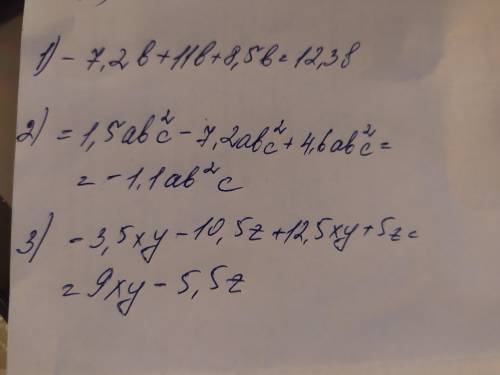 1) - 7,2b + 11b + 8,5b = 12,3b
2) = 1,5ab²c - 7,2ab²c + 4,6ab²c =
= -1,1ab²c
3) - 3,5xy - 10,5z + 12,5xy + 5z =
= 9xy - 5,5z